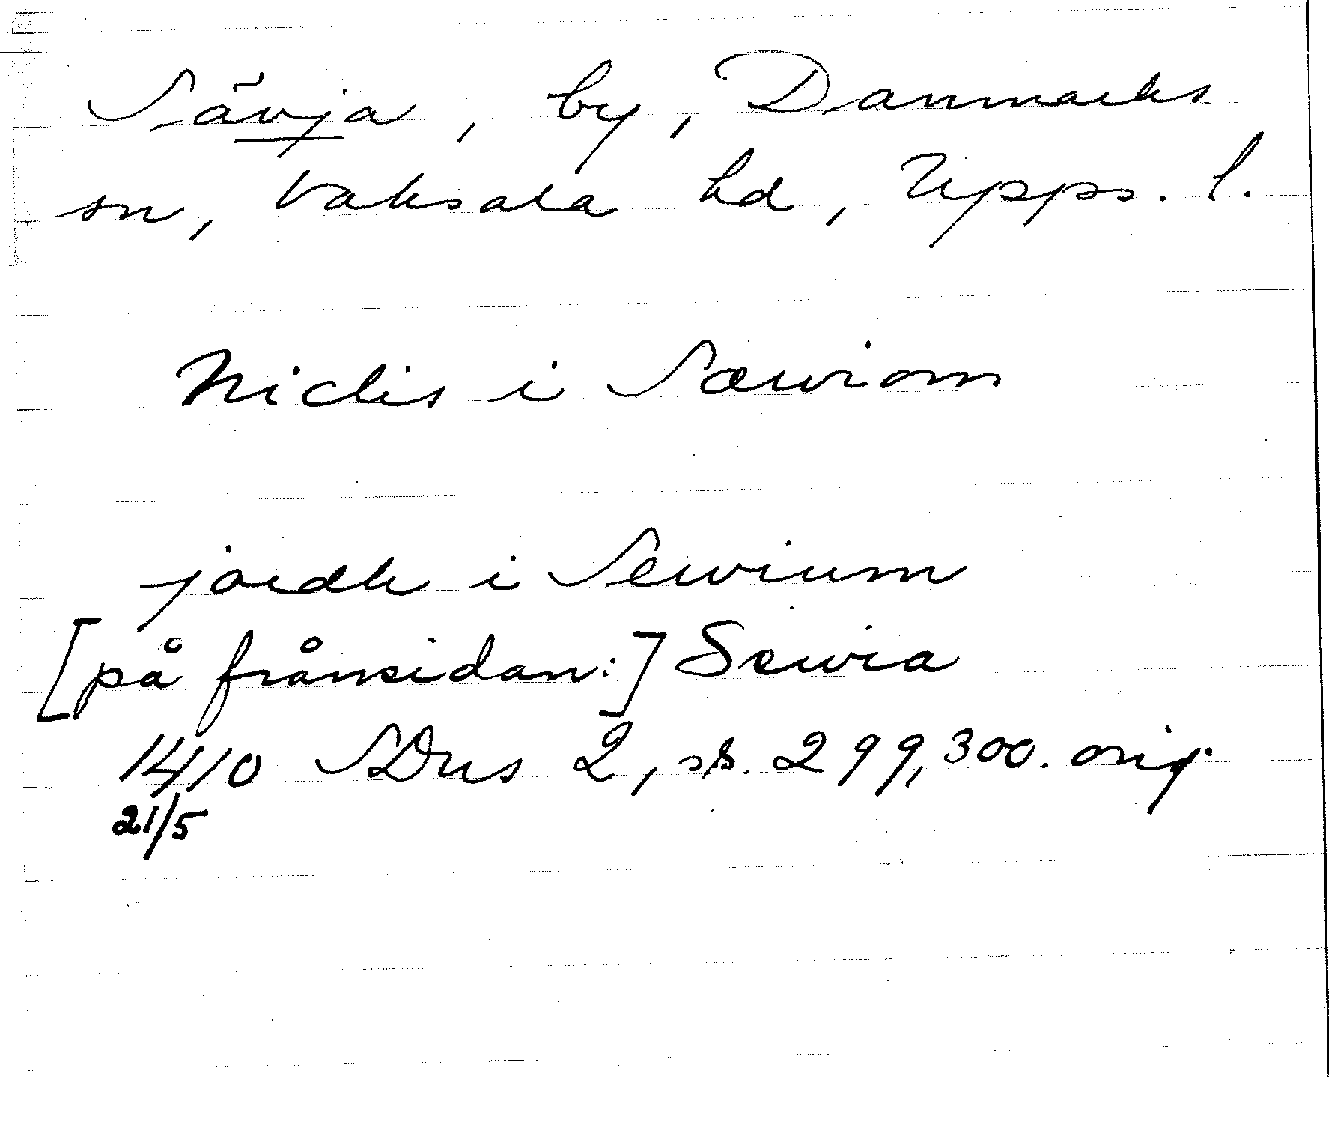 Sävja, by, Danmarks
sn, Vaksala hd, Upps. l.
Niclis i Sæwiom
jordh i Sewium
[på frånsidan:] Sewia
1410 SDns 2, sb. 299, 300. orig.
21/5